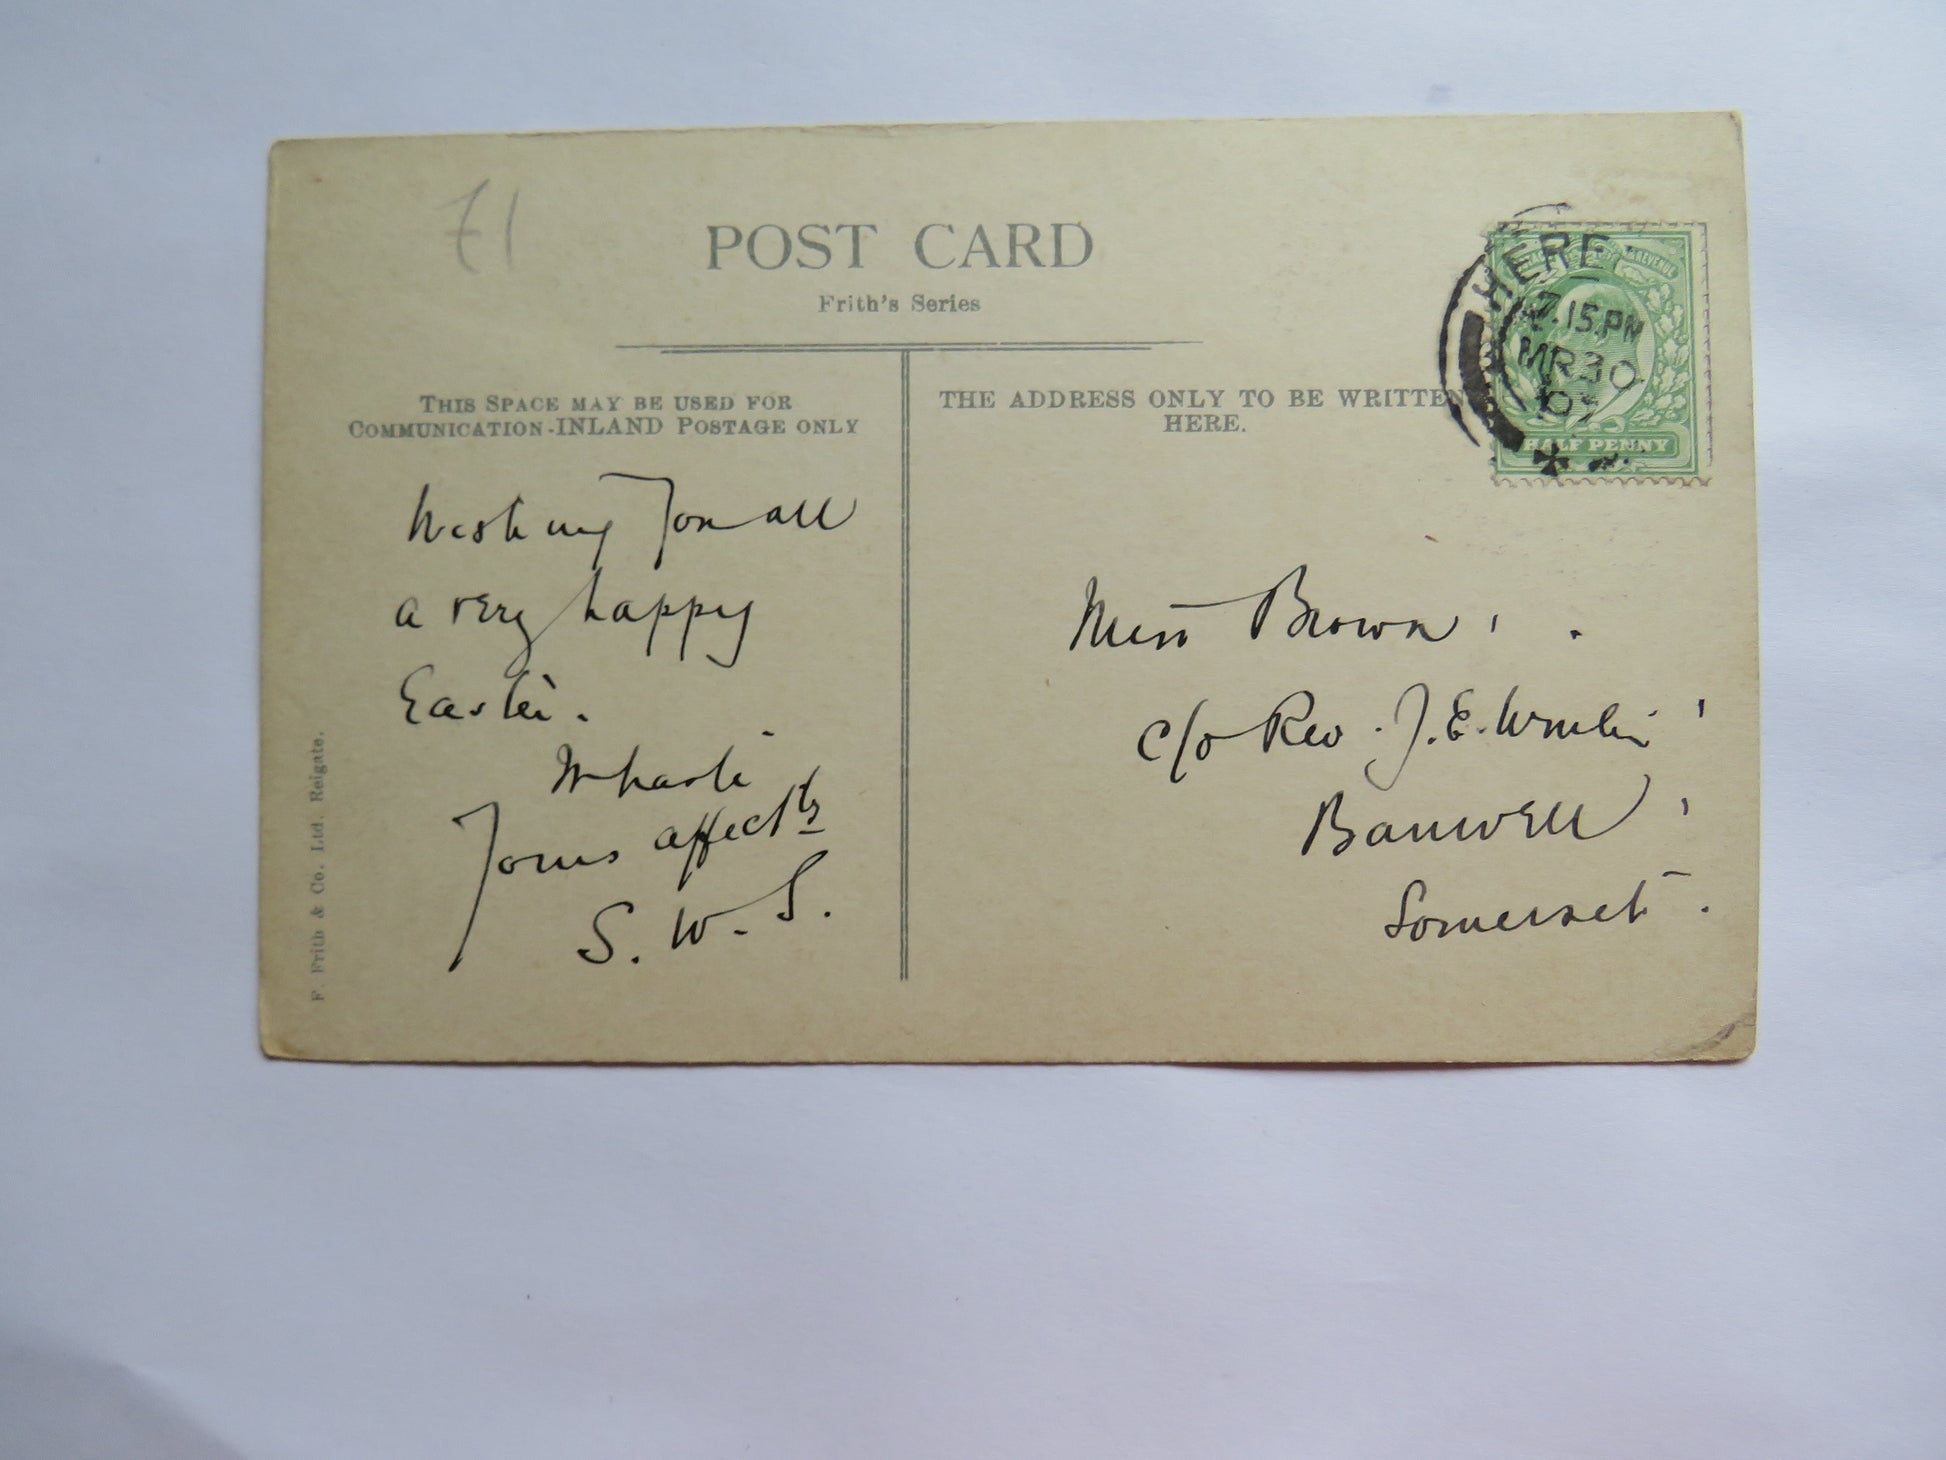 £1
POST CARD
Frith's Series
THIS SPACE MAY BE USED FOR
COMMUNICATION-INLAND POSTAGE ONLY
THE ADDRESS ONLY TO BE WRITTEN
HERE.
HERE
7.15.PM
MR 30
07
HALF PENNY
Wishing you all
a very happy
Easter.
In haste
Yours affectly
S. W. S.
Miss Brown,
c/o Rev. J. E.
Banwell,
Somerset.
F. Frith & Co. Ltd. Reigate.